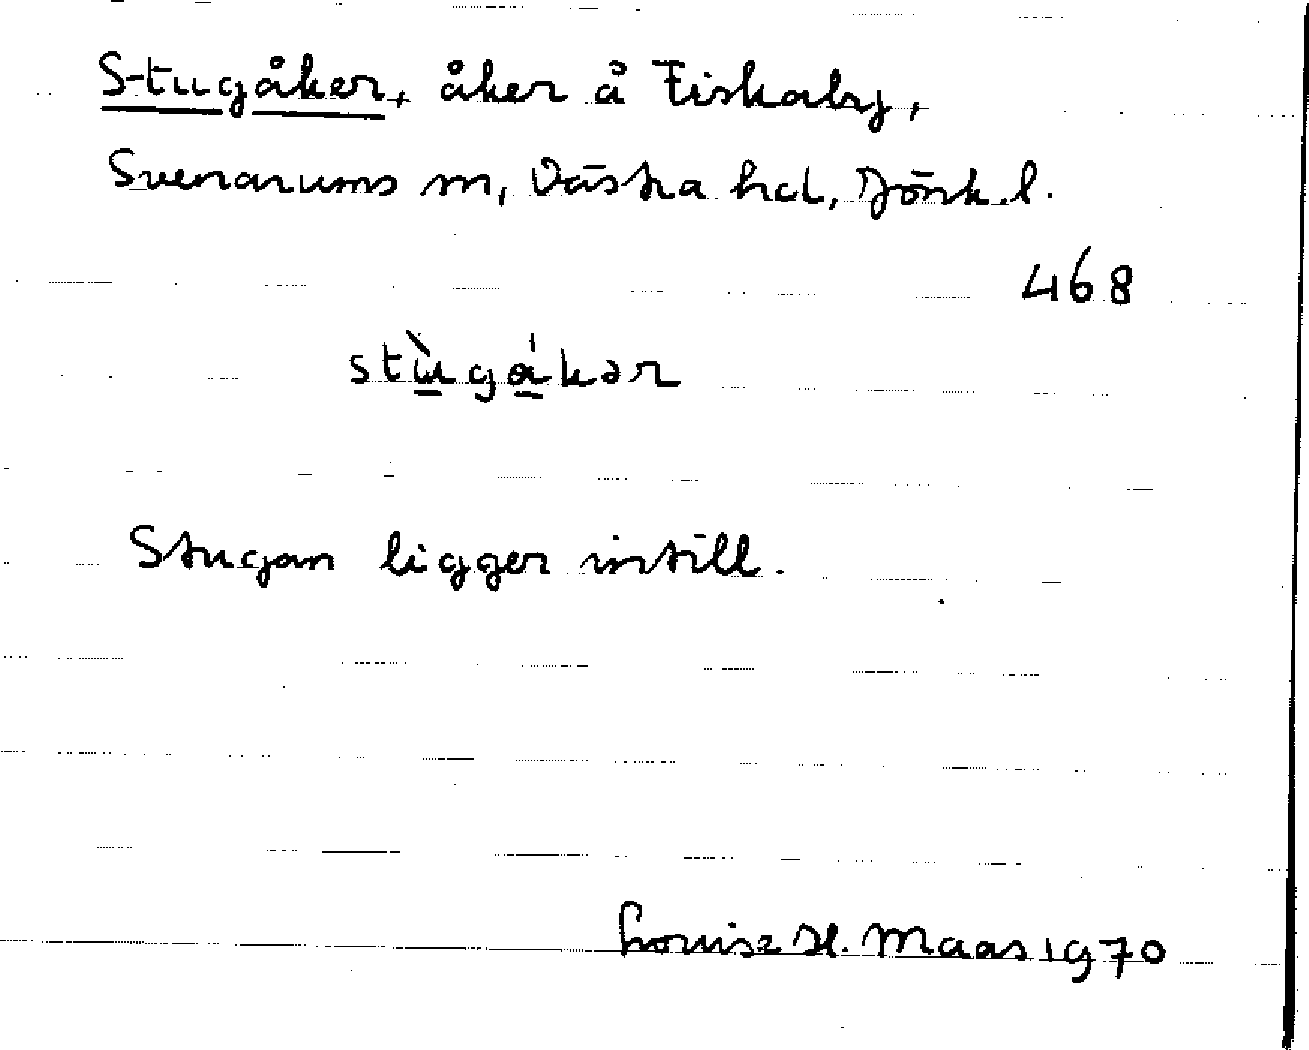 Stugåker, åker å Fiskaby,
Svenarums sn, Västra hd, Jönk.l.
468
stùgákər
Stugan ligger intill.
Louise H. Maas 1970